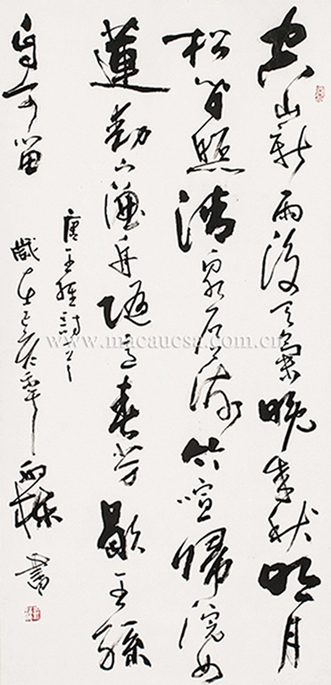 空山新雨後天氣晚來秋明月
松間照清泉石上流竹喧歸浣女
蓮動下漁舟隨意春芳歇王孫
自可留
唐王維詩
歲在
書
www.macaucsa.com.cn